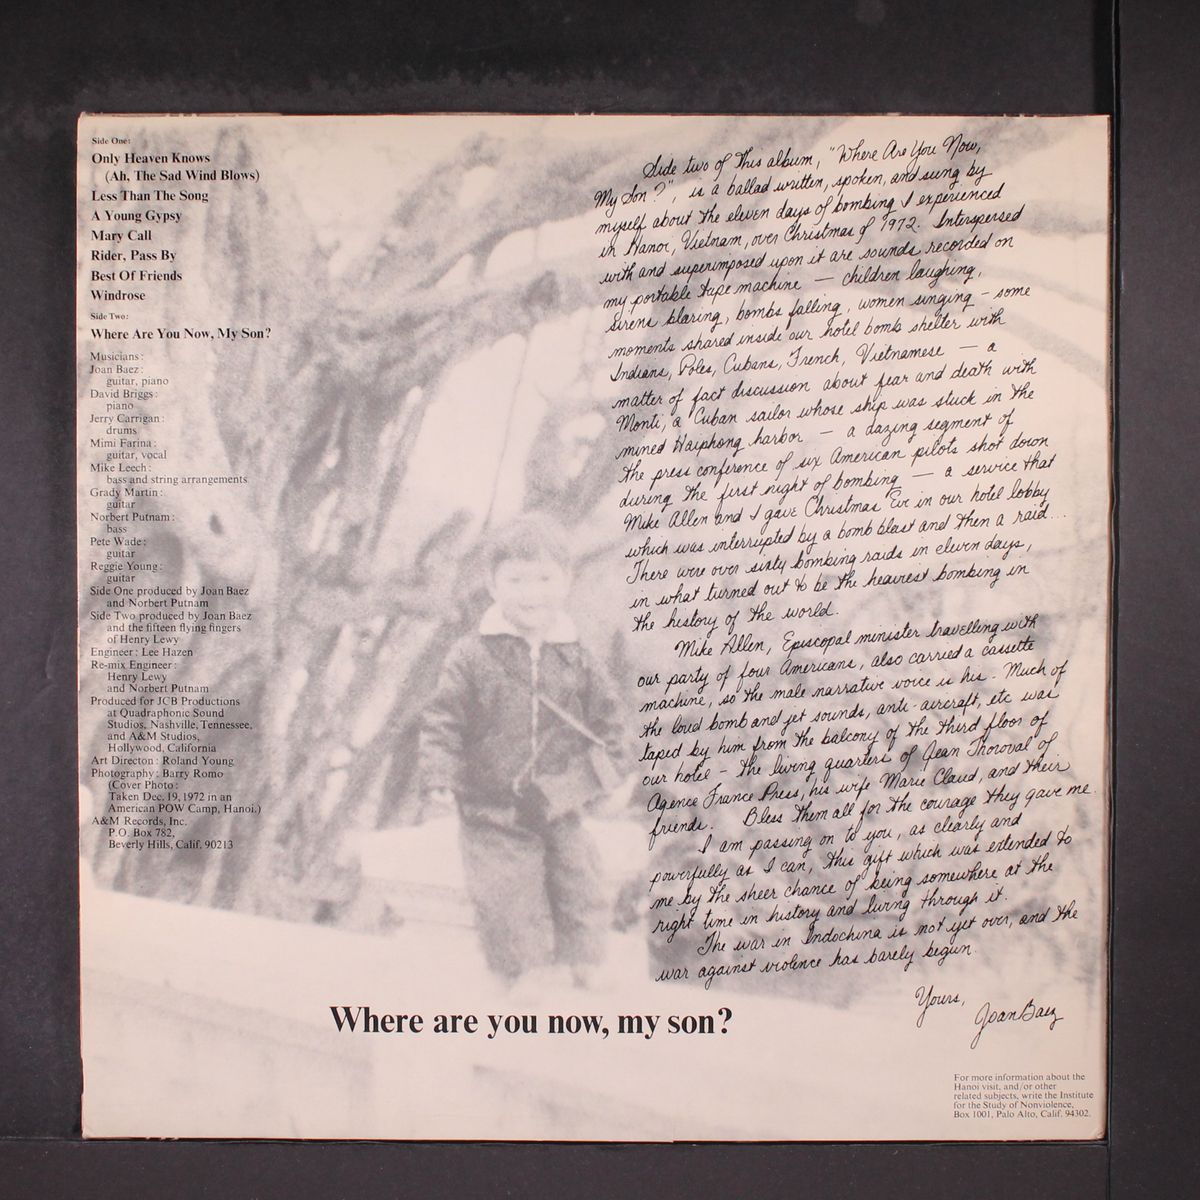 Side One:
Only Heaven Knows
(Ah, The Sad Wind Blows)
Less Than The Song
A Young Gypsy
Mary Call
Rider, Pass By
Best Of Friends
Windrose
Side Two:
Where Are You Now, My Son?
Musicians:
Joan Baez:
guitar, piano
David Briggs:
piano
Jerry Carrigan:
drums
Mimi Farina:
guitar, vocal
Mike Leech:
bass and string arrangements
Grady Martin:
guitar
Norbert Putnam:
bass
Pete Wade:
guitar
Reggie Young:
guitar
Side One produced by Joan Baez
and Norbert Putnam
Side Two produced by Joan Baez
and the fifteen flying fingers
of Henry Lewy
Engineer: Lee Hazen
Re-mix Engineer:
Henry Lewy
and Norbert Putnam
Produced for JCB Productions
at Quadraphonic Sound
Studios, Nashville, Tennessee,
and A&M Studios,
Hollywood, California
Art Directon: Roland Young
Photography: Barry Romo
(Cover Photo:
Taken Dec. 19, 1972 in an
American POW Camp, Hanoi.)
A&M Records, Inc.
P.O. Box 782,
Beverly Hills, Calif. 90213
Side two of this album, "Where Are You Now,
My Son?", is a ballad written, spoken, and sung by
myself about the eleven days of bombing I experienced
in Hanoi, Vietnam, over Christmas of 1972. Interspersed
with and superimposed upon it are sounds recorded on
my portable tape machine — children laughing,
sirens blaring, bombs falling, women singing - some
moments shared inside our hotel bomb shelter with
Indians, Poles, Cubans, French, Vietnamese — a
matter of fact discussion about fear and death with
Monti, a Cuban sailor whose ship was stuck in the
mined Haiphong harbor — a dazing segment of
the press conference of six American pilots shot down
during the first night of bombing — a service that
Mike Allen and I gave Christmas Eve in our hotel lobby
which was interrupted by a bomb blast and then a raid...
There were over sixty bombing raids in eleven days,
in what turned out to be the heaviest bombing in
the history of the world.
Mike Allen, Episcopal minister travelling with
our party of four Americans, also carried a cassette
machine, so the male narrative voice is his. Much of
the loud bomb and jet sounds, anti-aircraft, etc was
taped by him from the balcony of the third floor of
our hotel - the living quarters of Jean Thoroval of
Agence France Press, his wife Marie Claud, and their
friends. Bless them all for the courage they gave me.
I am passing on to you, as clearly and
powerfully as I can, this gift which was extended to
me by the sheer chance of being somewhere at the
right time in history and living through it.
The war in Indochina is not yet over, and the
war against violence has barely begun.
Yours,
Joan Baez
Where are you now, my son?
For more information about the
Hanoi visit, and/or other
related subjects, write the Institute
for the Study of Nonviolence,
Box 1001, Palo Alto, Calif. 94302.